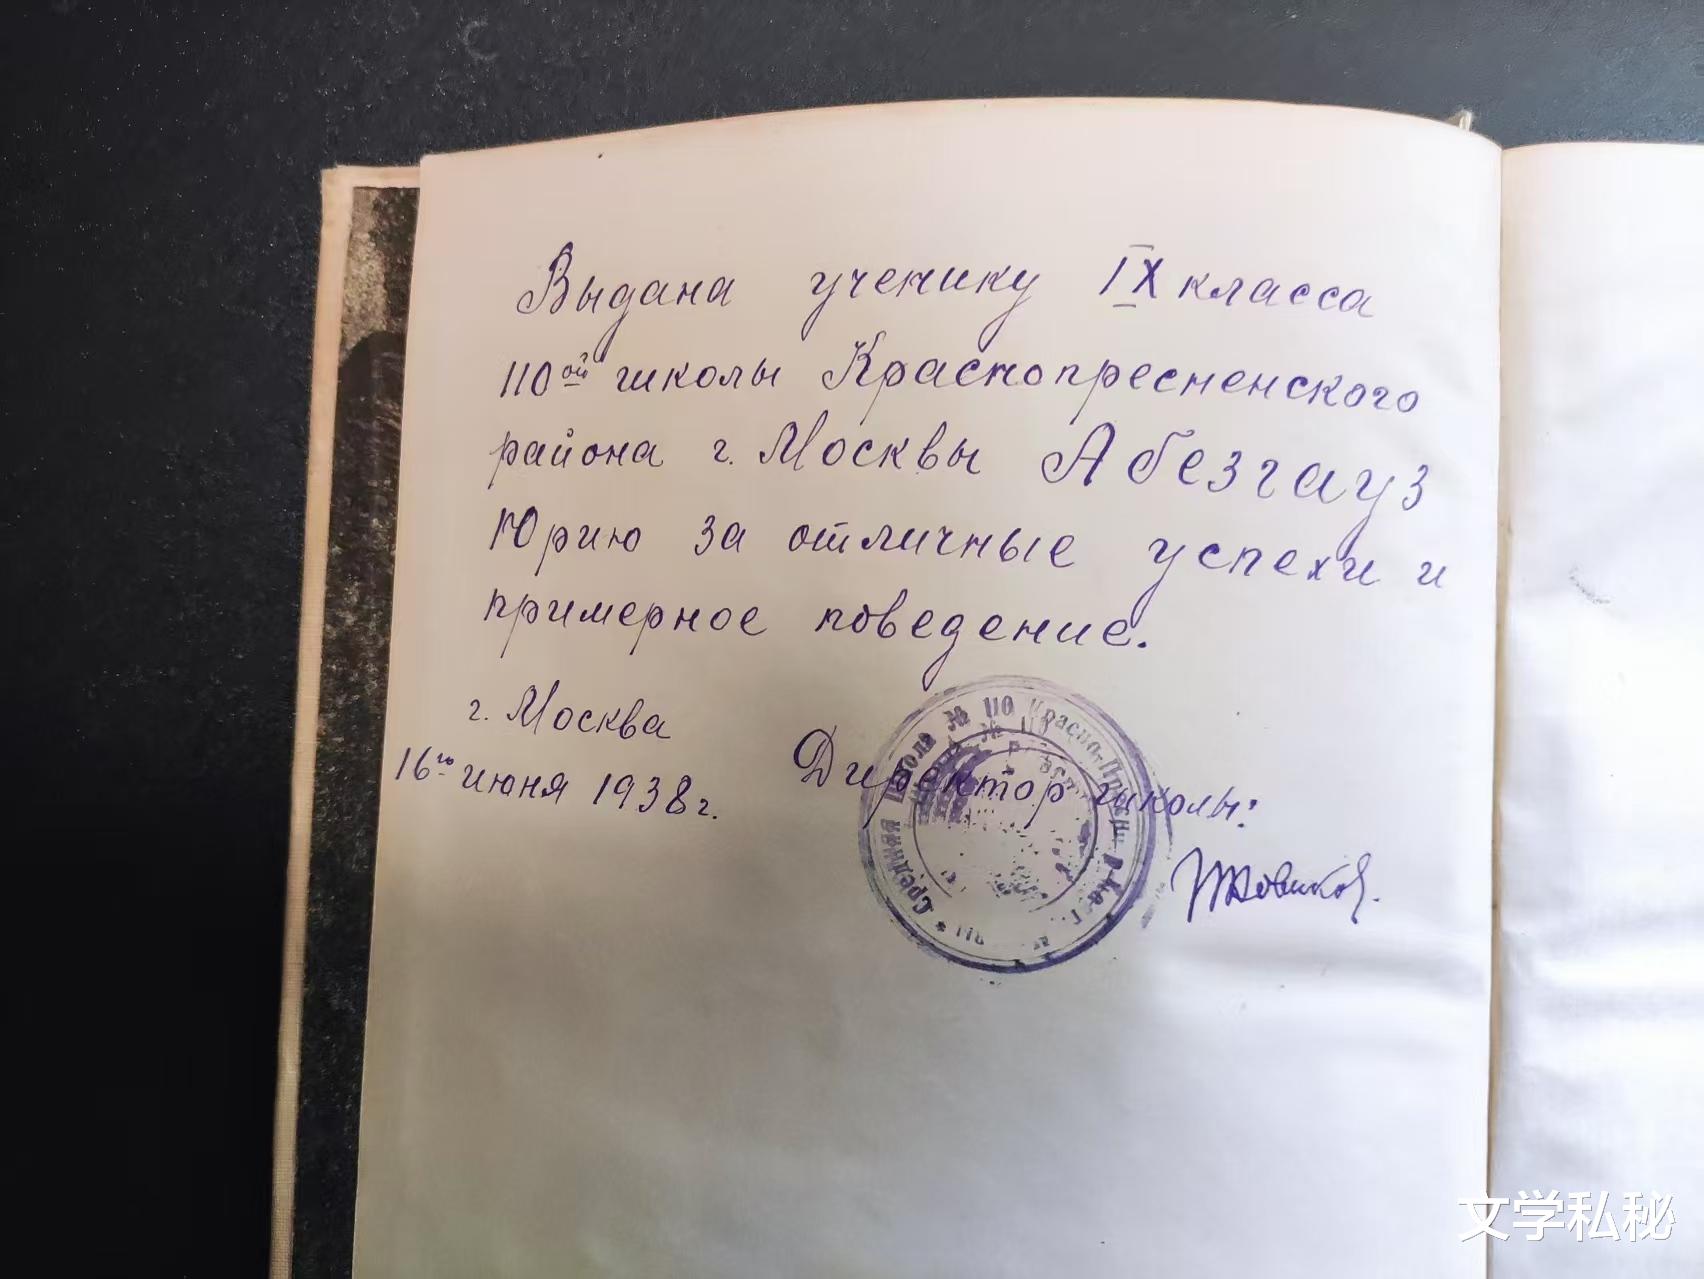 Выдана ученику IX класса
110ой школы Краснопресненского
района г. Москвы Абезгауз
Юрию за отличные успехи и
примерное поведение.
г. Москва
16го июня 1938 г.
Директор школы:
Средняя школа № 110 Красно-Пресн. р-на г.
文学私秘